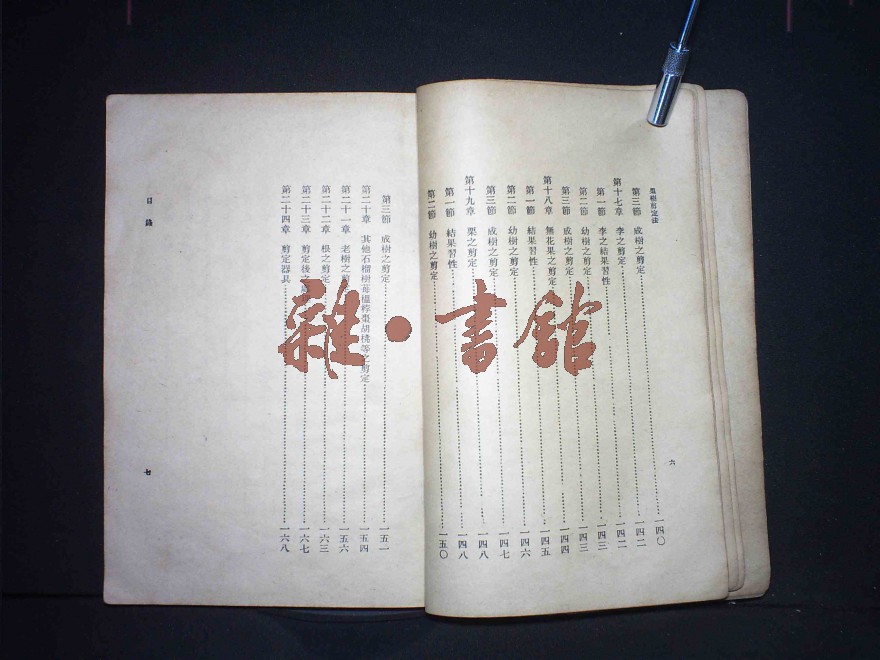 果樹剪定法
第三節 成樹之剪定……一四〇
第十七章 李之剪定……一四二
第一節 李之結果習性……一四二
第二節 幼樹之剪定……一四三
第三節 成樹之剪定……一四三
第十八章 無花果之剪定……一四四
第一節 結果習性……一四五
第二節 幼樹之剪定……一四六
第三節 成樹之剪定……一四七
第十九章 栗之剪定……一四八
第一節 結果習性……一四八
第二節 幼樹之剪定……一五〇
六
第三節 成樹之剪定……一五一
第二十章 其他石榴樹莓榲桲棗胡桃等之剪定……一五四
第二十一章 老樹之剪……一五六
第二十二章 根之剪定……一六三
第二十三章 剪定後之……一六七
第二十四章 剪定器具……一六八
目錄
七
雜·書館